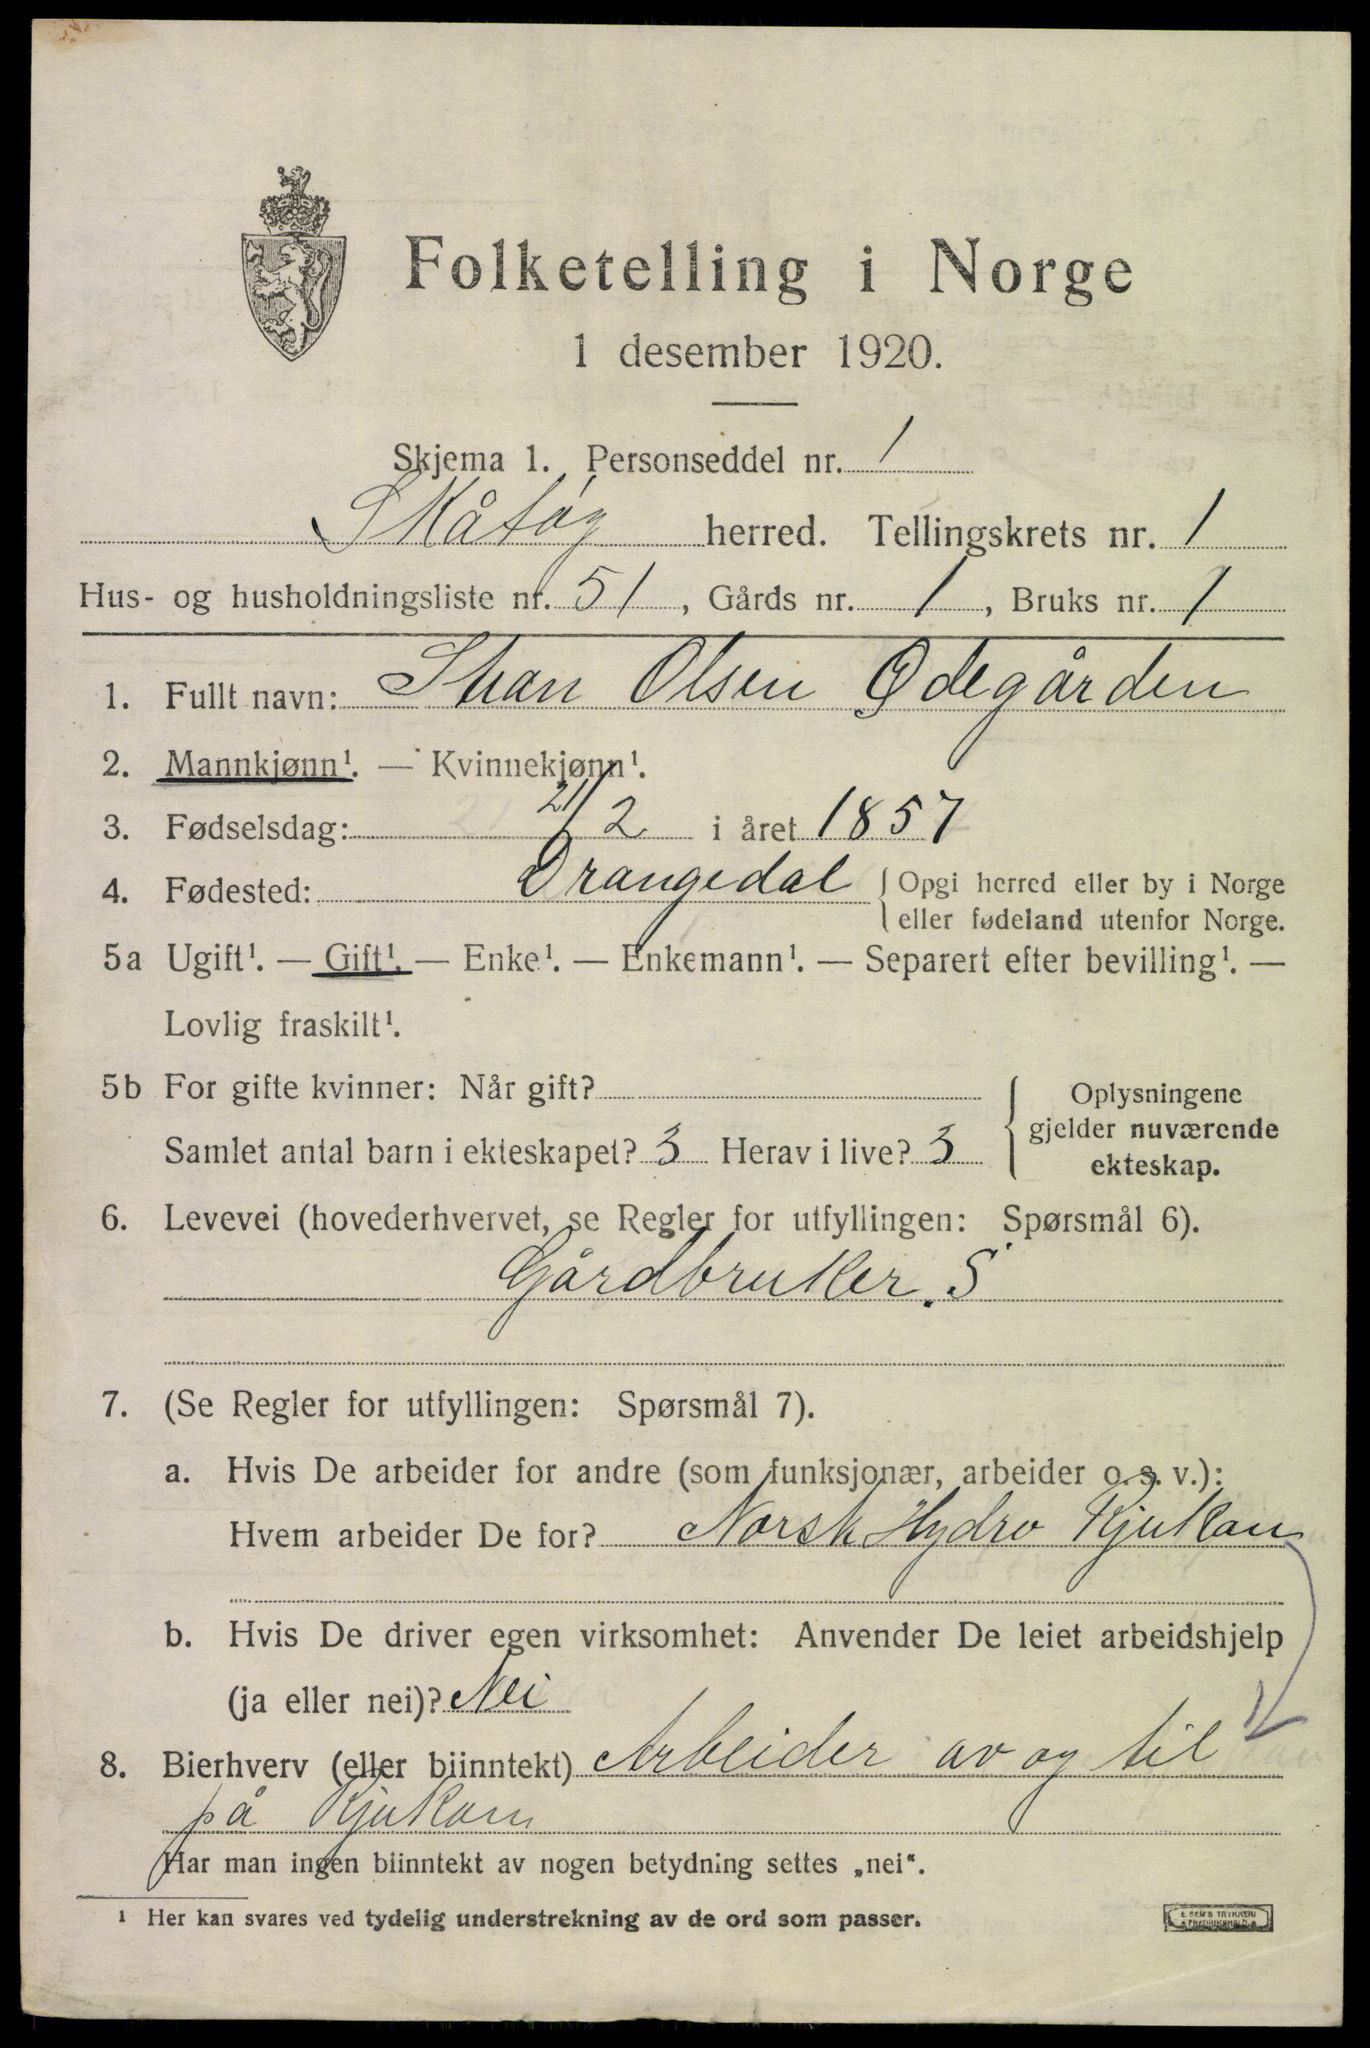 Folketelling i Norge
1 desember 1920.
Skjema 1. Personseddel nr. 1
Skåtøy herred. Tellingskrets nr. 1
Hus- og husholdningsliste nr. 51, Gårds nr. 1, Bruks nr. 1
1. Fullt navn: Olsen Ødegården
2. Mannkjønn¹. — Kvinnekjønn¹.
3. Fødselsdag: 21/2 i året 1857
4. Fødested: Drangedal { Opgi herred eller by i Norge
eller fødeland utenfor Norge.
5a Ugift¹. — Gift¹. — Enke¹. — Enkemann¹. — Separert efter bevilling¹. —
Lovlig fraskilt¹.
5b For gifte kvinner: Når gift?
Samlet antal barn i ekteskapet? 3 Herav i live? 3
{ Oplysningene
gjelder nuværende
ekteskap.
6. Levevei (hovederhvervet, se Regler for utfyllingen: Spørsmål 6).
Gårdbruker. S
7. (Se Regler for utfyllingen: Spørsmål 7).
a. Hvis De arbeider for andre (som funksjonær, arbeider o. s. v.):
Hvem arbeider De for? Norsk Hydro Rjukan
b. Hvis De driver egen virksomhet: Anvender De leiet arbeidshjelp
(ja eller nei)? Nei
8. Bierhverv (eller biinntekt) Arbeider av og til
på Rjukan
Har man ingen biinntekt av nogen betydning settes „nei“.
¹ Her kan svares ved tydelig understrekning av de ord som passer.
E. SEM'S TRYKKERI
FREDRIKSHALD